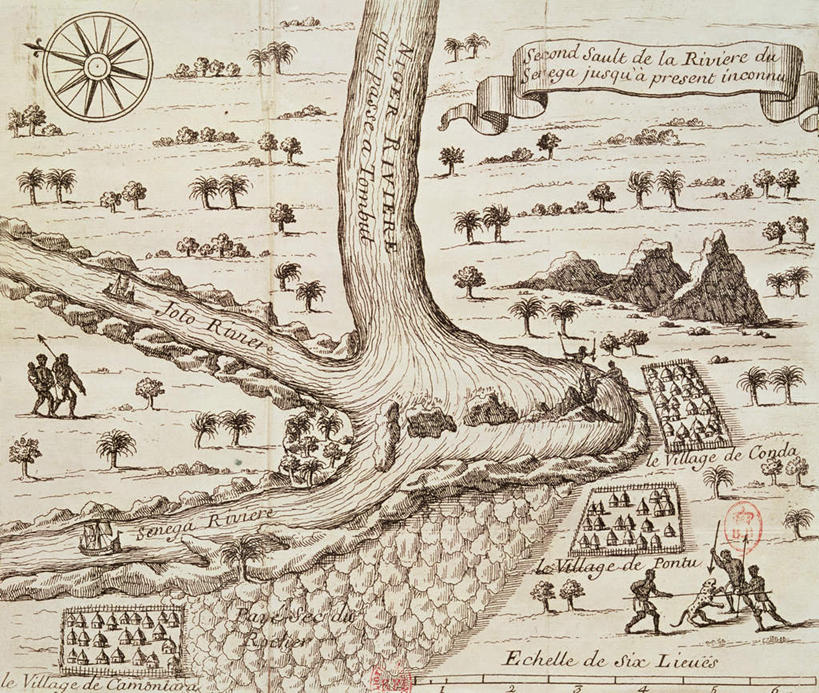 Second Sault de la Riviere du
Senega jusqu'à present inconnu
NIGER RIVIERE
qui passe a Tombut
Jolo Riviere
le Village de Conda
Senega Riviere
le Village de Pontu
Pavé Sec du
Rocher
le Village de Camoniara
Echelle de Six Lieuës
1 2 3 4 5 6